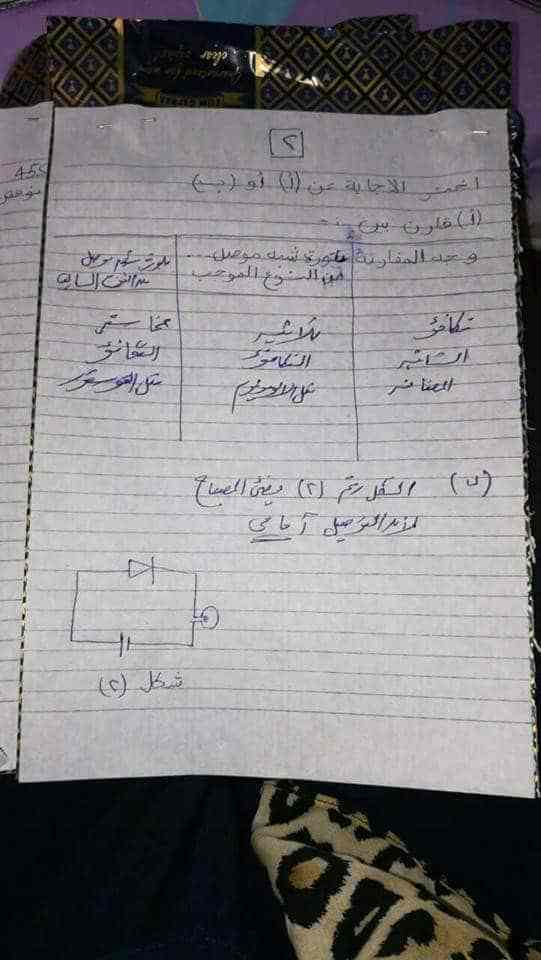 ٢
اختر الاجابة عن (أ) أو (ب)
(أ) قارن بين :-
وجه المقارنة
بلورة شبه موصل ...
من النوع الموجب
بلورة شبه موصل
من النوع السالب
تكافؤ
ثلاثى
خماسى
الشائبه
التكافؤ
التكافؤ
العناصر
مثل الالومنيوم
مثل الفوسفور
(ب) الشكل رقم (٢) يضئ المصباح
لأن التوصيل أمامى
شكل (٢)
455